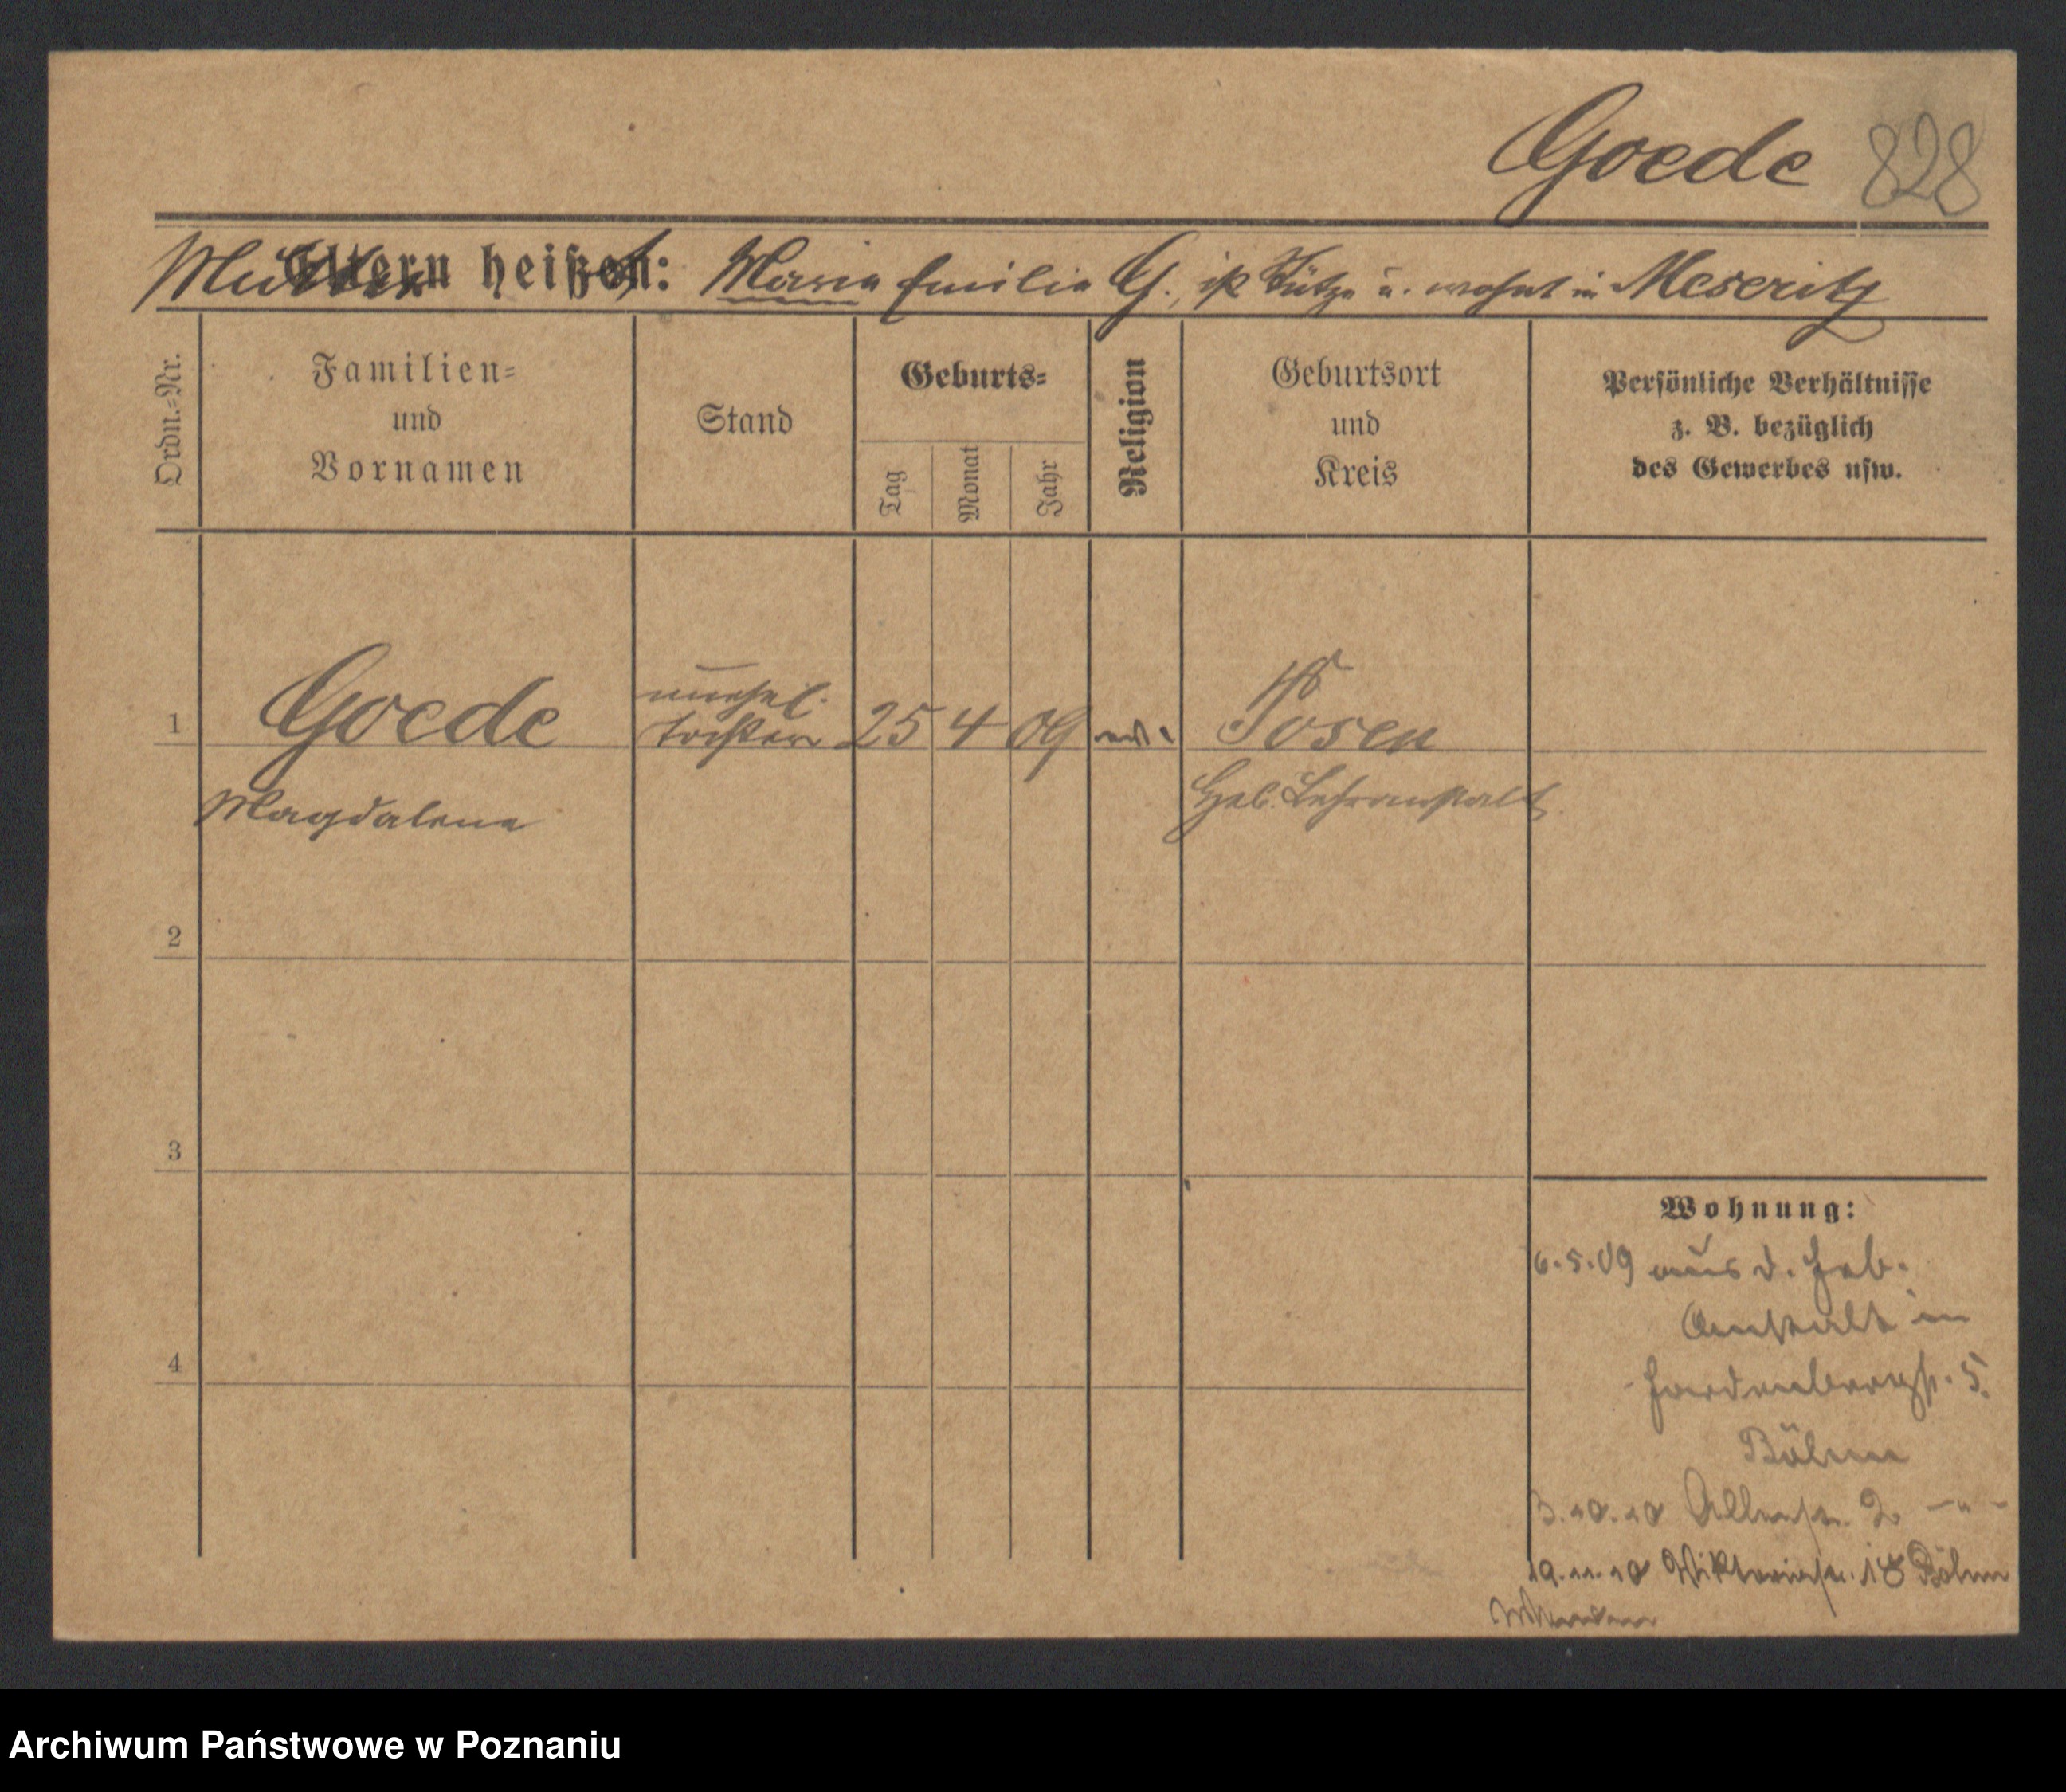 Goede 828
Mutter Eltern heißen: Maria Emilie G., ist Stütze u. wohnt in Meseritz
Ordn.-Nr.
Familien-
und
Vornamen
Stand
Geburts-
Tag
Monat
Jahr
Religion
Geburtsort
und
Kreis
Persönliche Verhältnisse
z. B. bezüglich
des Gewerbes usw.
1 Goede unehel. Tochter 25 4 09 Posen
Magdalene Heb. Lehranstalt
2
3
4
Wohnung:
6.5.09 aus d. Heb.
Anstalt in
Hardenbergstr. 5.
Böhm
3.10.10 2 -"-
19.11.10 Viktoriastr. 18 Böhm
Archiwum Państwowe w Poznaniu